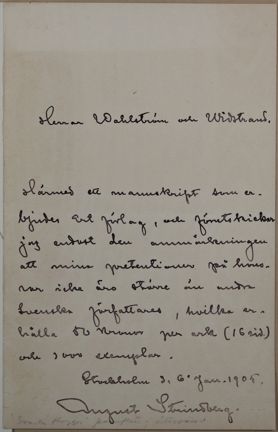 Herrar Wahlström och Widstrand.
Härmed ett manuskript som er-
bjudes Ert förlag, och förutskickar
jag endast den anmärkningen
att mina pretentioner på hono-
rar icke äro större än andra
Svenska författares, hvilka er-
hålla 50 kronor per ark (16 sid.)
och 1000 exemplar.
Stockholm d. 6 Jan. 1905.
August Strindberg.